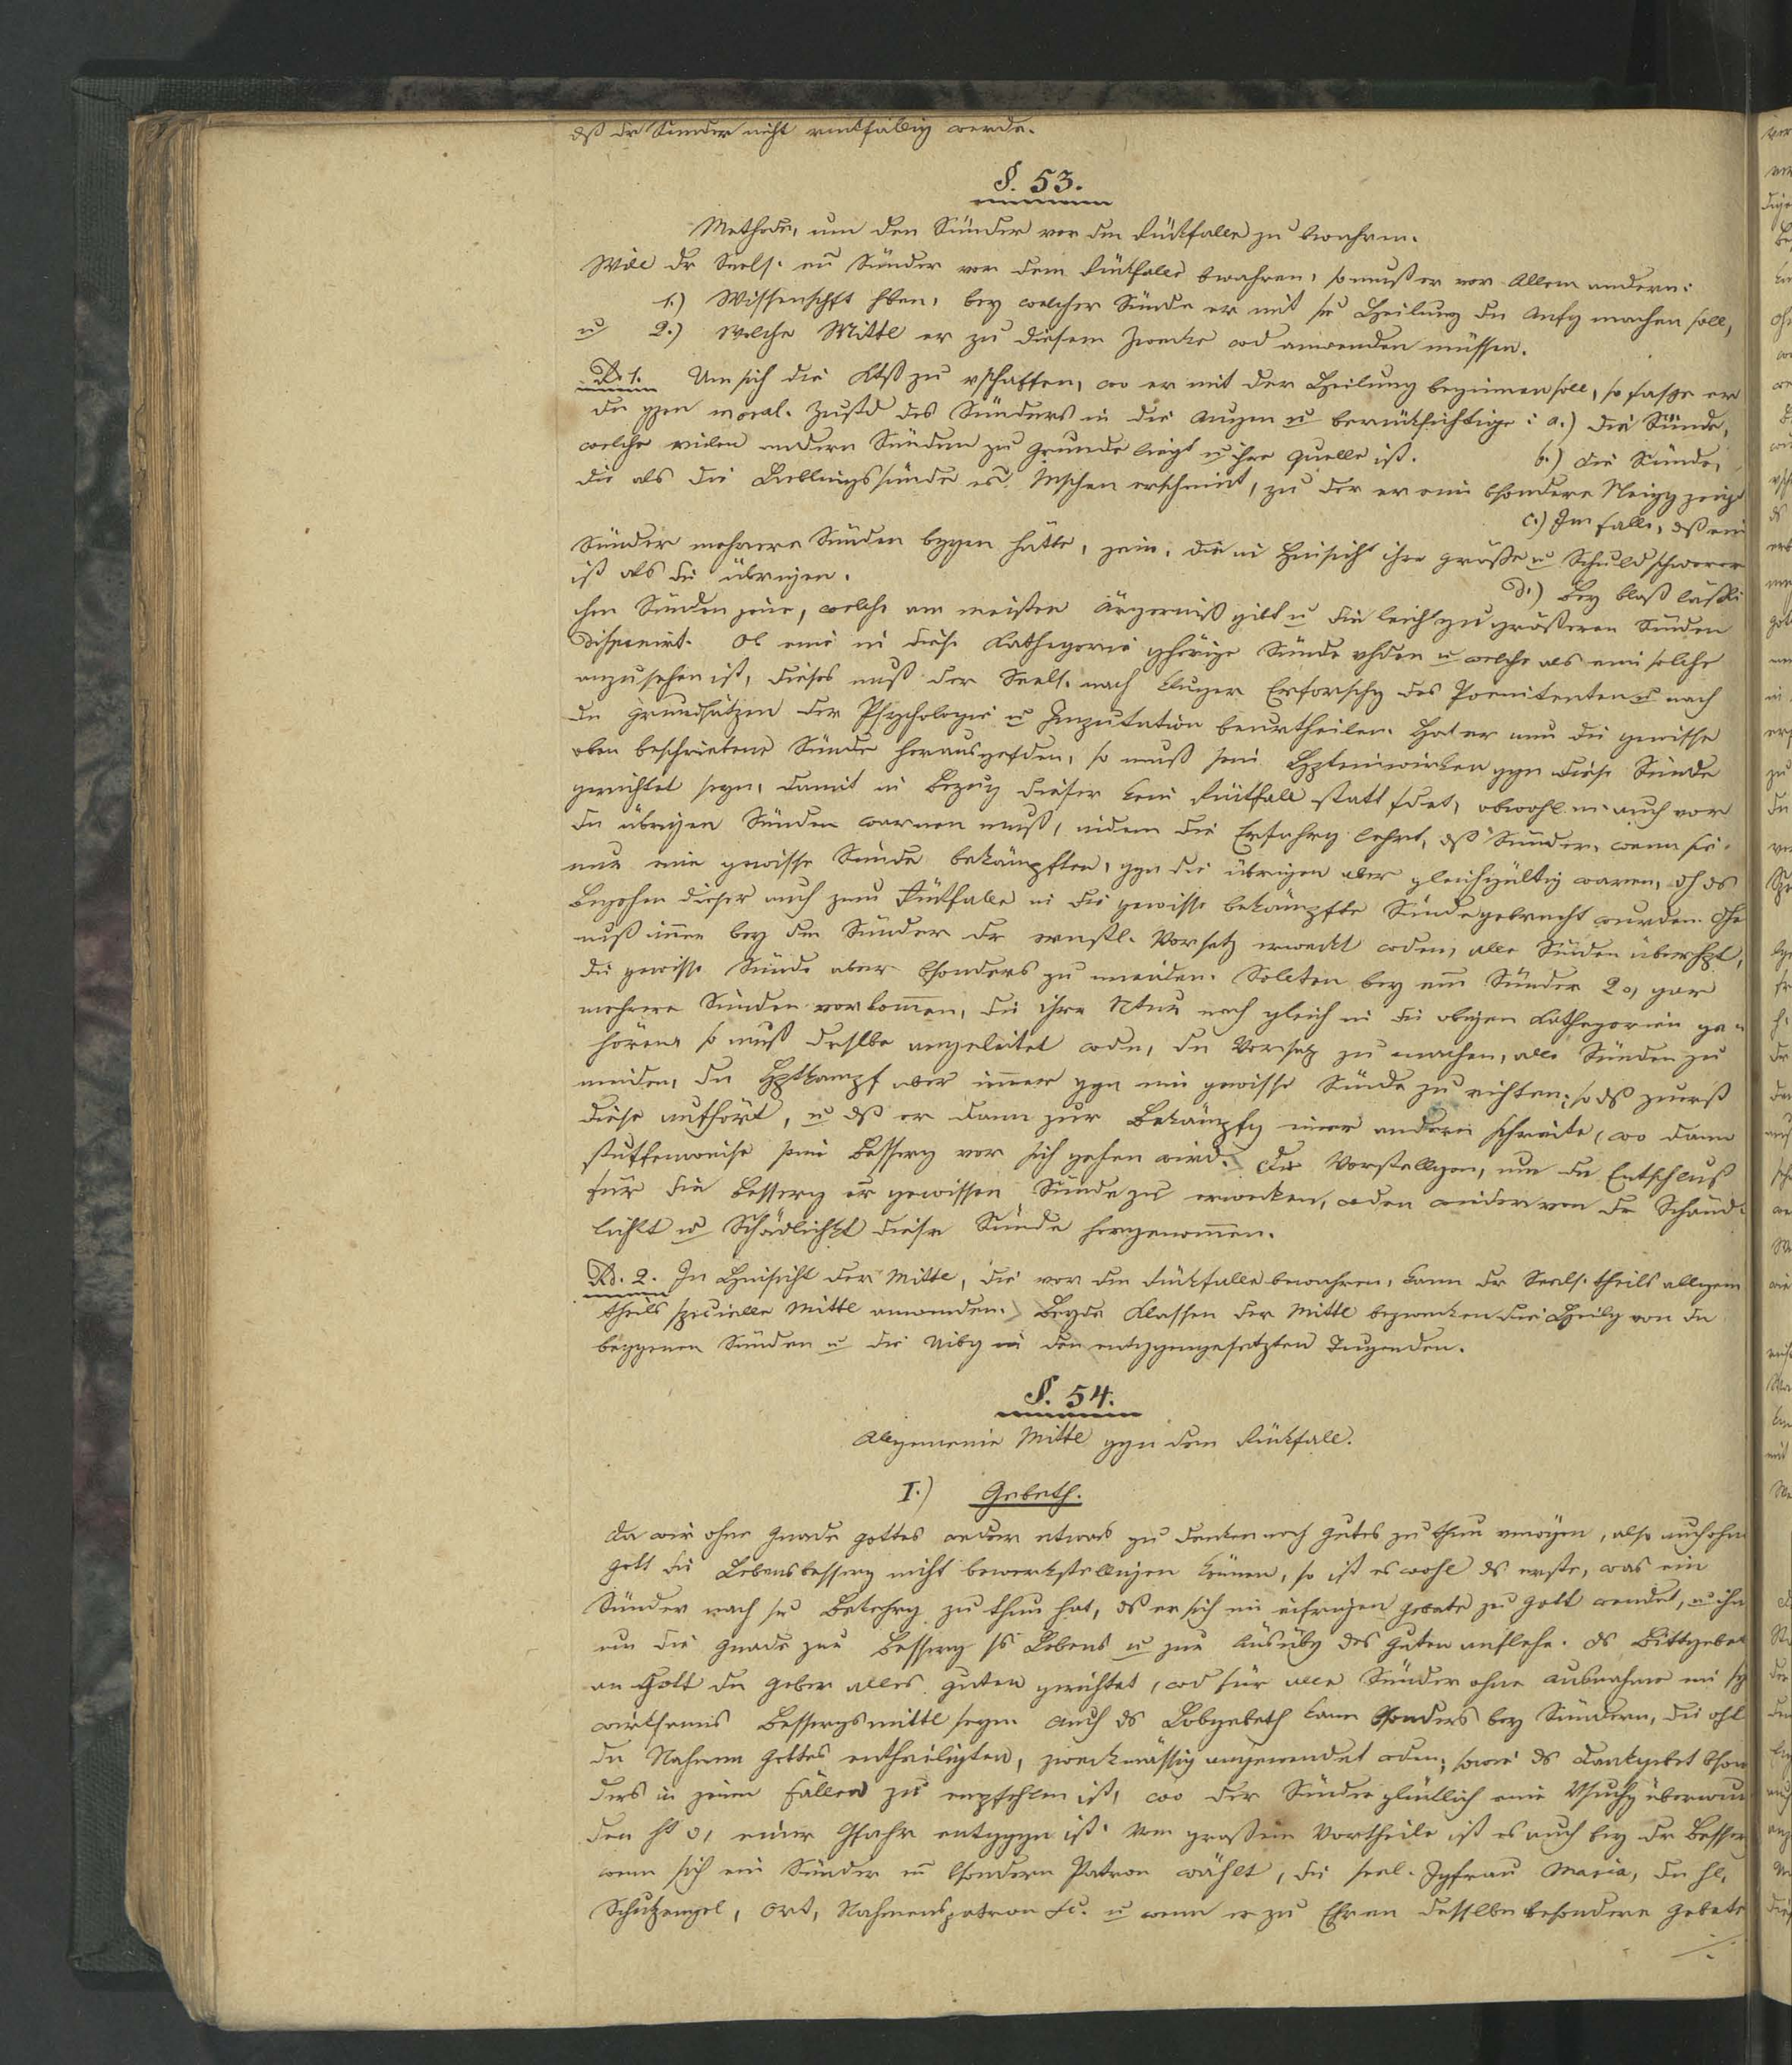 dß der Sünder nicht rückfällig werde.
§. 53.
Methode, um den Sünder vor dem Rückfalle zu bewahren.
Will dr Seels. ein Sünder vor dem Rückfalle bewahren, so muß er vor Allem andern:
1.) Wissenschft hben, bey welcher Sünde er mit sr Heilung dn Anfg machen soll,
u 2.) Welche Mittl er zu diesem Zwecke wd anwenden müssen.
Ad. 1. Um sich die Ktß zu vschaffen, wo er mit der Heilung beginnen soll, so fasse er
dn ggen moral. Zustd des Sünders in die Augen u berücksichtige: a.) die Sünde,
welche vielen andern Sünden zu Grunde liegt u ihre Quelle ist. b.) die Sünde,
die als die Lieblingssünde es Mschen erscheint, zu der er eine bsondere Neigg zeigt
c.) Im Falle, dß ein
Sünder mehrere Sünden bggen hätte, jene, die in Hinsicht ihre Größe u Schuld schwerer
ist als die übrigen. d.) Bey bloß läßli
chen Sünden jene, welche am meisten Ärgerniß gibt u die leicht zu größeren Sünden
disponirt. Ob eine in diese Kathegorie ghörige Sünde vhden u welche als eine solche
anzusehen ist, dieses muß der Seels. nach kluger Erforschg des Poenitenten u nach
dn Grundsätzen der Psychologie u Imputation beurtheilen. Hat er nun die gewisse
oben beschriebene Sünde herausgefden, so muß sein Hpteinwirken ggn diese Sünde
gerichtet seyn, damit in Bezug dieser kein Rückfall statt fdet, obwohl er auch vor
dn übrigen Sünden warnen muß, indem die Erfahrg lehrt, dß Sünder, wenn sie
nur eine gewisse Sünde bekämpften, ggn die übrigen aber gleichgültig waren, dh ds
Begehen dieser auch zum Rückfalle in die gewisse bekämpfte Sünde gebracht wurden. Dhe
muß immer bey dm Sünder dr ernstl. Vorsatz erweckt wden, alle Sünden überhpt,
die gewisse Sünde aber bsonders zu meiden. Sollten bey eim Sünder 2 o, gar
mehrere Sünden vorkommen, die ihre Ntur nach gleich in die obigen Kathegorien ge=
hören, so muß derslbe angeleitet wdn, dn Vorsatz zu machen, alle Sünden zu
meiden, dn Hptkampf aber immer ggn eine gewisse Sünde zu richten; so dß zuerst
diese aufhört, u dß er dann zur Bekämpfg einer andern schreite, wo dann
stuffenweise seine Besserg vor sich gehen wird. Die Vorstellgen, um dn Entschluß
für die Besserg er gewissen Sünde zu erwecken, wden wieder von dr Schänd=
lichkt u Schädlichkt dieser Sünde hergenommen.
Ad. 2. In Hinsicht der Mittl, die vor dm Rückfalle bewahren, kann dr Seels. theils allgem
theils specielle Mittl anwenden. Beyde Klassen der Mittl bezwecken die Heilg von dn
beggenen Sünden u die Uibg in den entggengesetzten Tugenden.
§. 54.
Allgemeine Mittl ggn den Rückfall.
I.) Gebeth.
Da wir ohne Gnade Gottes weder etwas zu denken noch Gutes zu thun vmögen, also auch ohne
Gott die Lebensbesserg nicht bewerkstelligen können, so ist es wohl ds erste, was ein
Sünder nach sr Bekehrg zu thun hat, ds er sich im eifrigen Gebete zu Gott wendet, u ihn
um die Gnade zur Besserg ss Lebens u zur Ausübg des Guten anflehe. Ds Bittgebet
an Gott dn Geber alles Guten gerichtet, wd für alle Sünder ohne Ausnahme ein
wirksames Bessergsmittl seyn. Auch ds Lobgebeth kann bsonders bey Sündern, die oft
dn Nahmen Gottes entheiligten, zweckmässig angewendet wden; sowie ds Dankgebet bson
ders in jenen Fällen zu empfehlen ist, wo der Sünder glücklich eine Vsuchg überwun
den ht o, einer Gfahr entggen ist. Von großem Vortheile ist es auch bey dr Besserg
wenn sich ein Sünder en bsondern Patron wählt, die seel. Jgfrau Maria, dn hl.
Schutzengel, Ort, Nahmenspatron &c. u wenn er zu Ehren desselben besondere Gebete